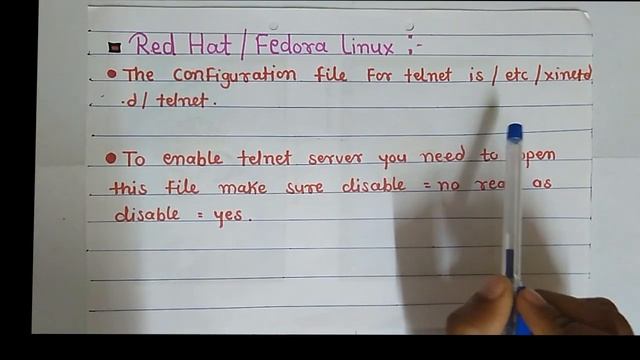 Red Hat / Fedora Linux :-
The configuration file for telnet is / etc / xinetd
.d / telnet.
To enable telnet server you need to open
this file make sure disable = no read as
disable = yes.